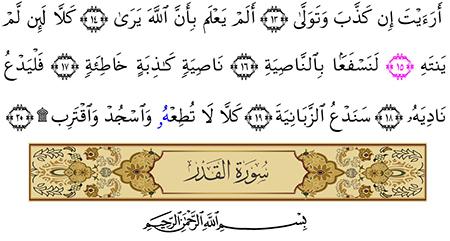 أَرَءَيْتَ إِن كَذَّبَ وَتَوَلَّىٰ ﴿١٣﴾ أَلَمْ يَعْلَم بِأَنَّ ٱللَّهَ يَرَىٰ ﴿١٤﴾ كَلَّا لَئِن لَّمْ
يَنتَهِ ﴿١٥﴾ لَنَسْفَعًۢا بِٱلنَّاصِيَةِ ﴿١٦﴾ نَاصِيَةٍۢ كَٰذِبَةٍ خَاطِئَةٍۢ ﴿١٧﴾ فَلْيَدْعُ
نَادِيَهُۥ ﴿١٨﴾ سَنَدْعُ ٱلزَّبَانِيَةَ ﴿١٩﴾ كَلَّا لَا تُطِعْهُ وَٱسْجُدْ وَٱقْتَرِب ۩ ﴿٢٠﴾
سُورَةُ ٱلْقَدْرِ
بِسْمِ ٱللَّهِ ٱلرَّحْمَٰنِ ٱلرَّحِيمِ